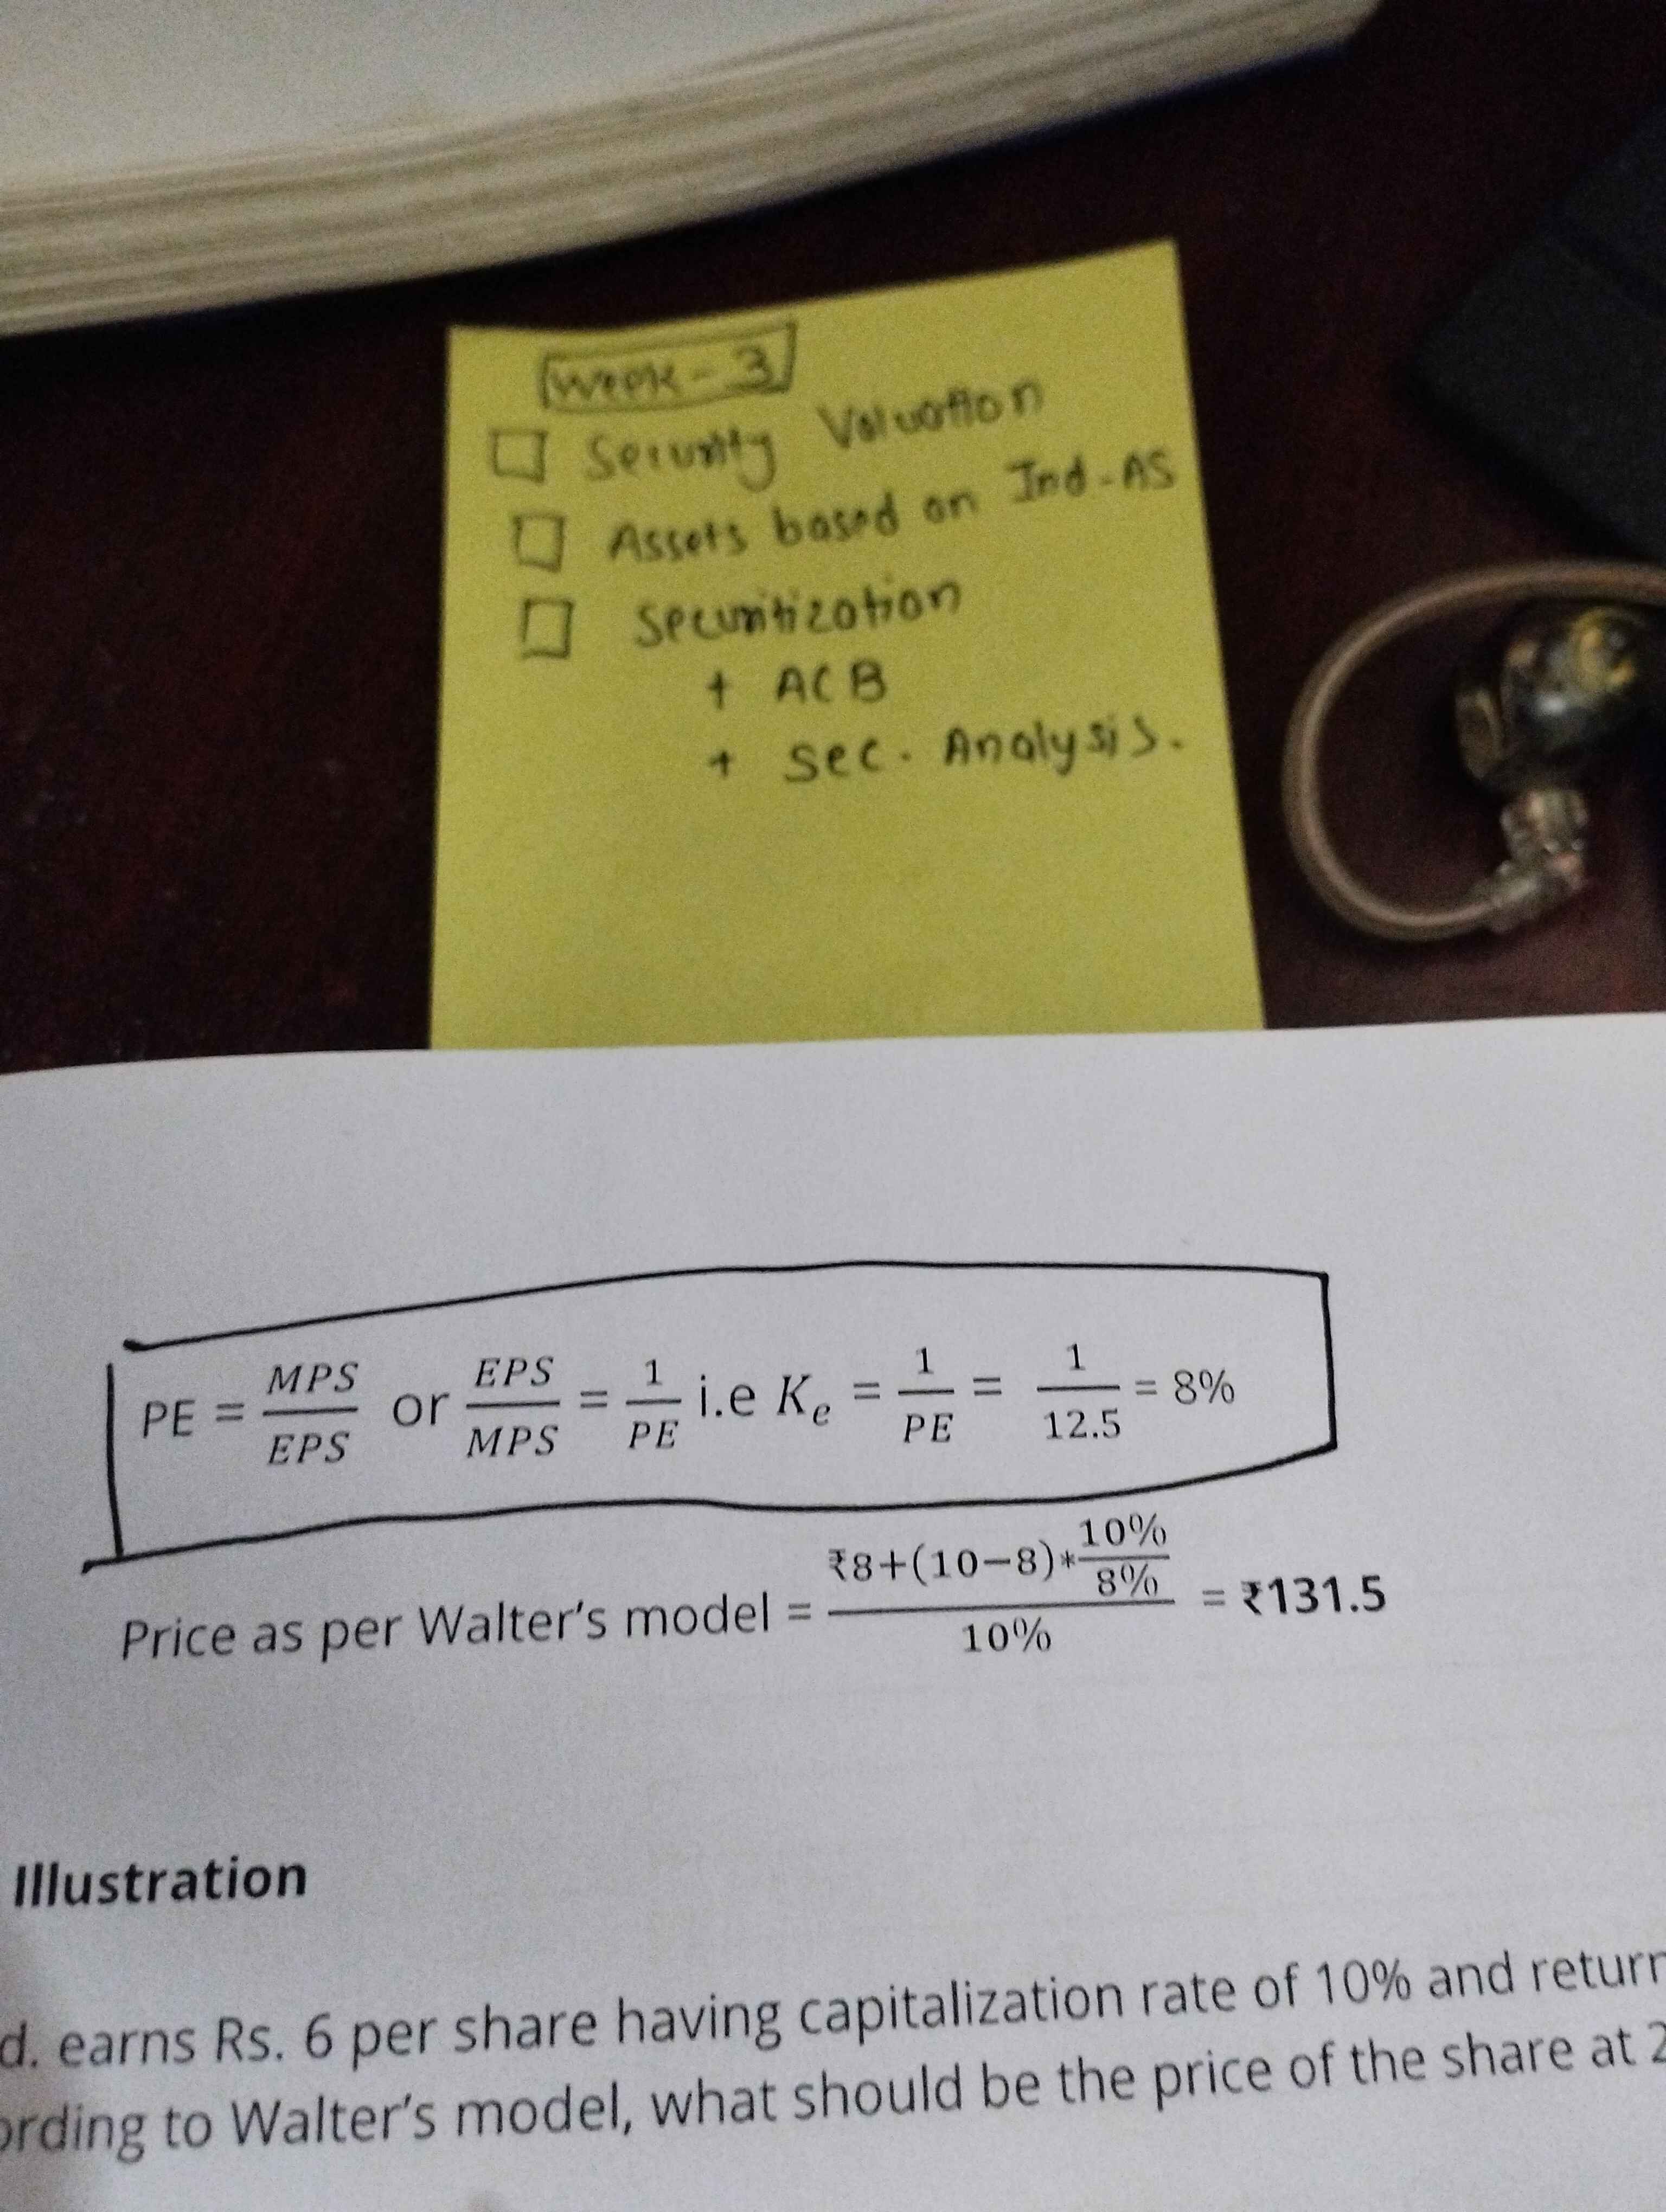 Week - 3
Security Valuation
Assets based on Ind-AS
Securitization
+ ACB
+ Sec. Analysis.
PE = MPS/EPS or EPS/MPS = 1/PE i.e K_e = 1/PE = 1/12.5 = 8%
Price as per Walter's model = (₹8+(10−8)*10%/8%)/10% = ₹131.5
Illustration
d. earns Rs. 6 per share having capitalization rate of 10% and return
ording to Walter's model, what should be the price of the share at 2